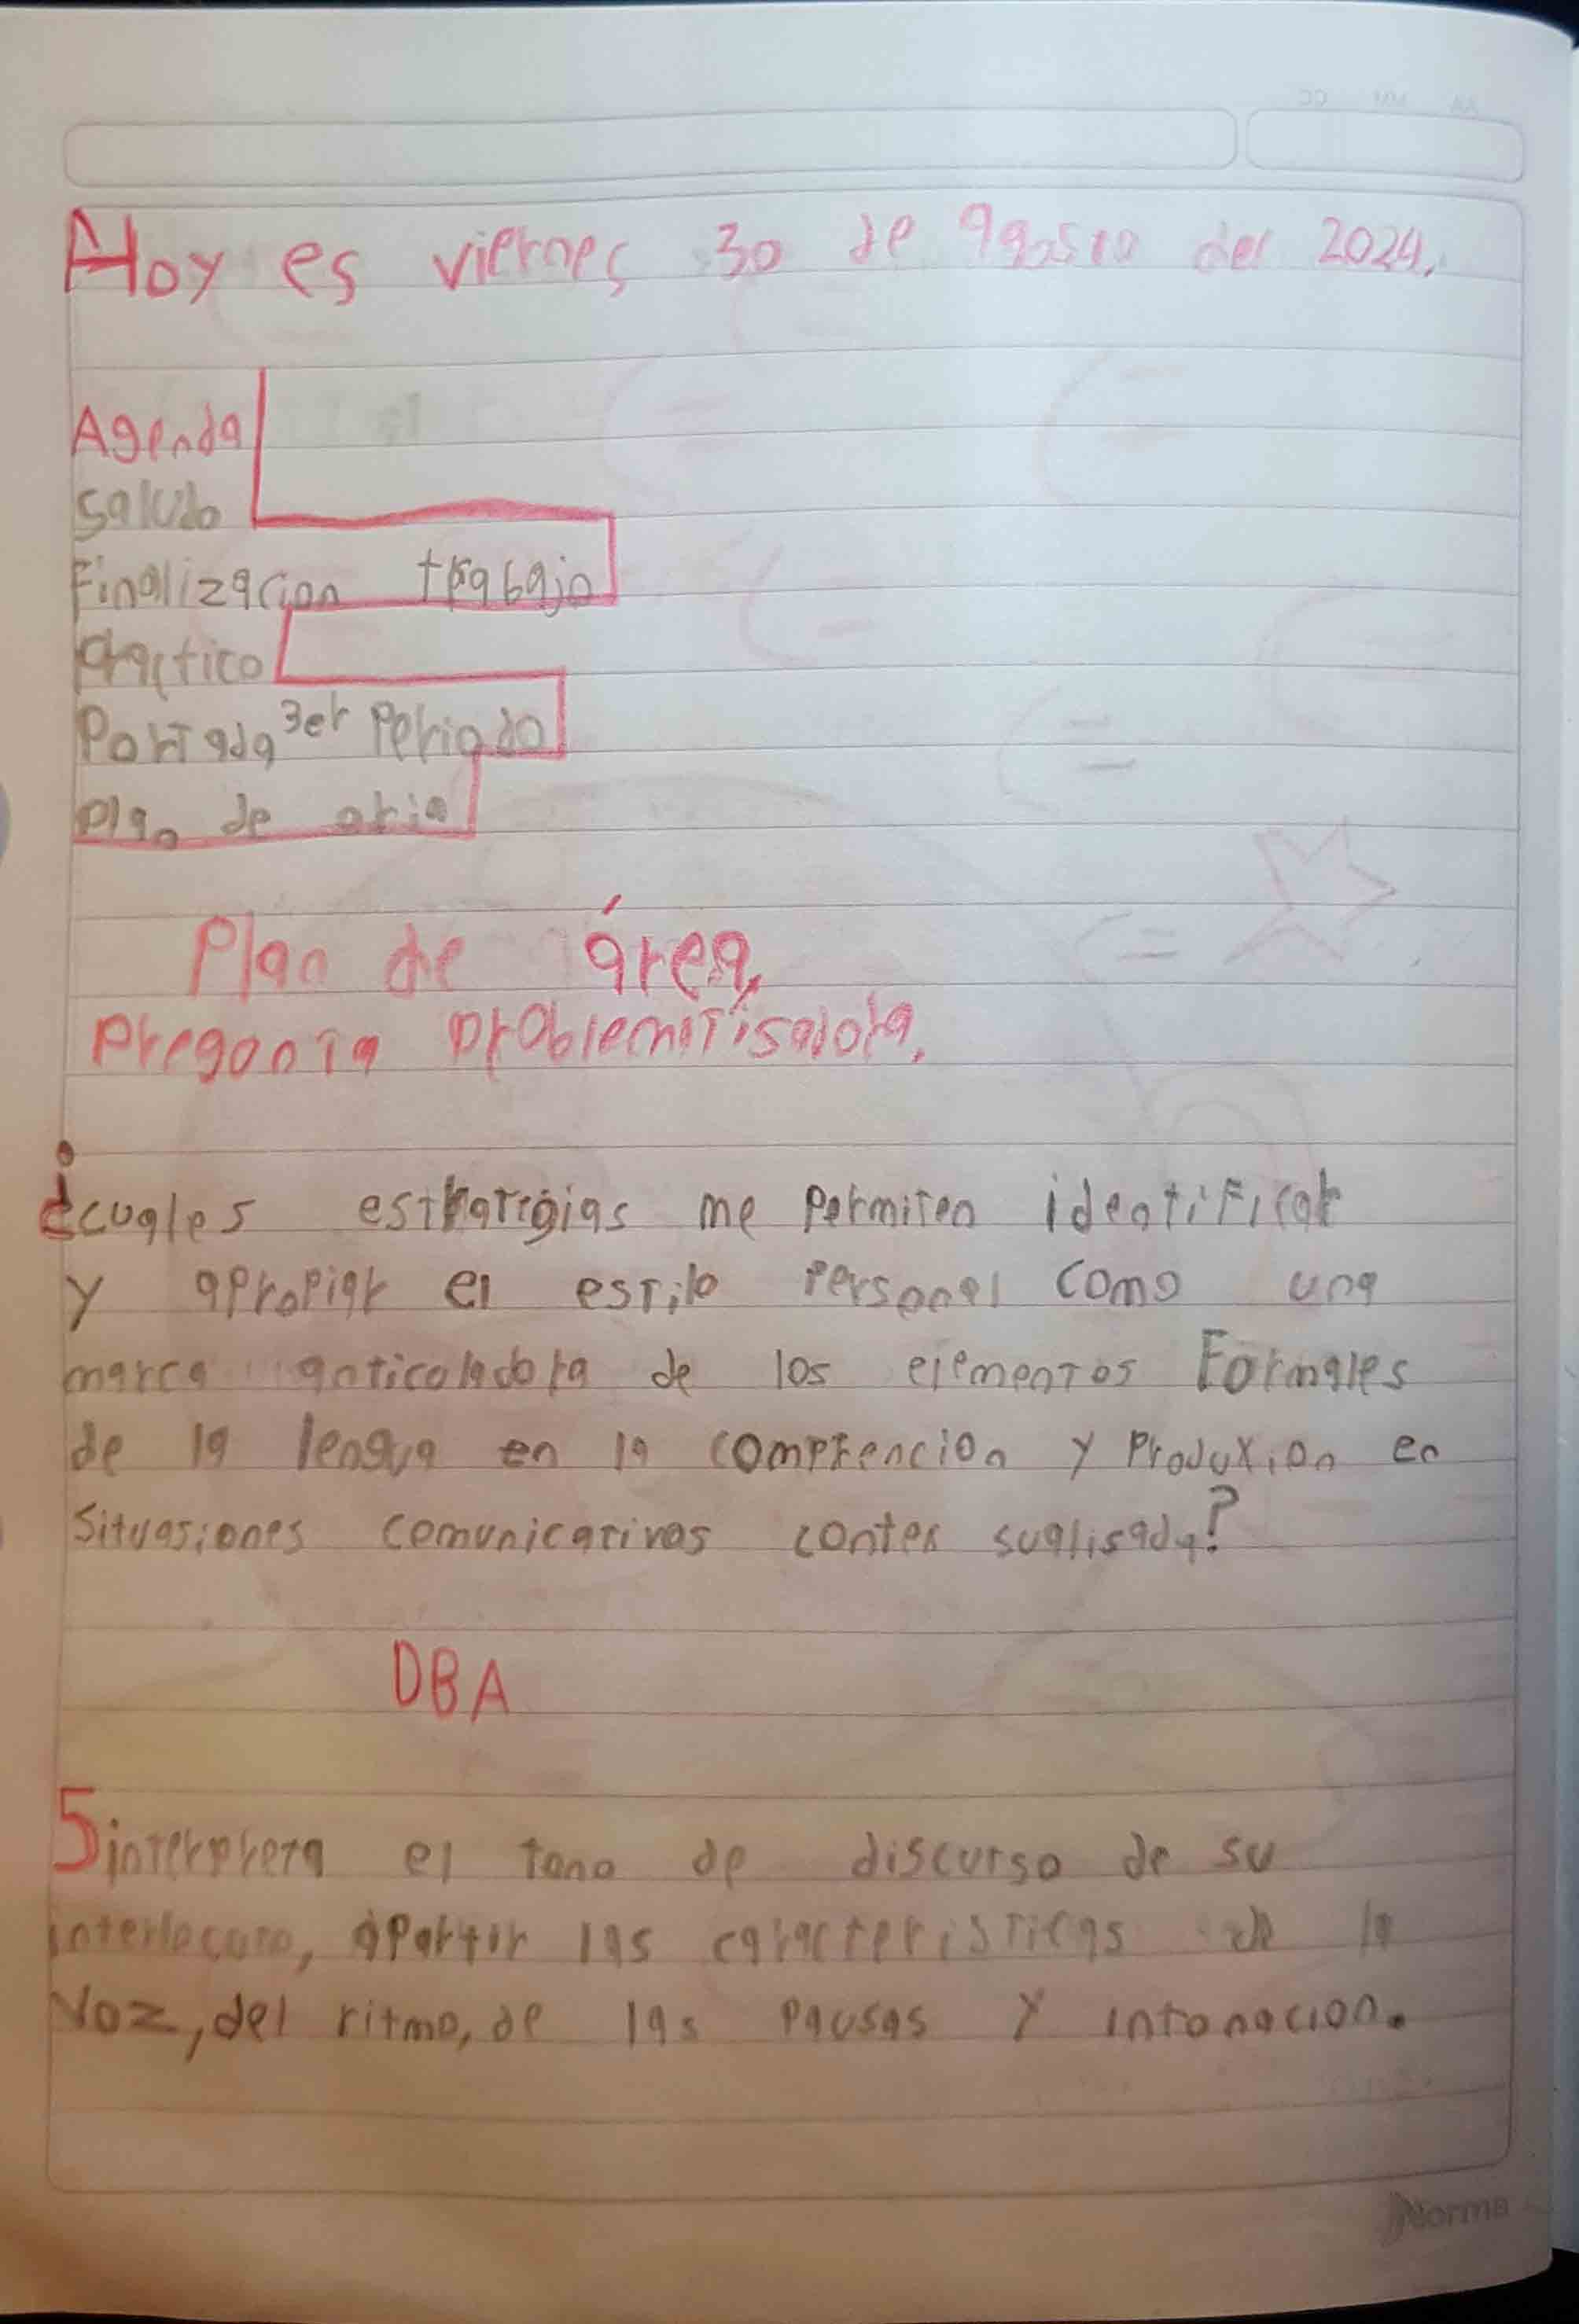 Hoy es viernes 30 de agosto del 2024.
Agenda
saludo
Finalizacion trabajo
practico
Portada 3er Periodo
plan de aria
Plan de área
pregonta problematisadora.
¿cuales estrategias me permiten identificar
y apropiar el estilo personal como una
marca anticoladora de los elementos Formales
de la lengua en la comprencion y Produxion en
Situasiones comunicativas contex sualisada?
DBA
5 interpreta el tono de discurso de su
interlocuto, apartir las caracteristicas de la
Voz, del ritmo, de las pausas y intonacion.
Norma